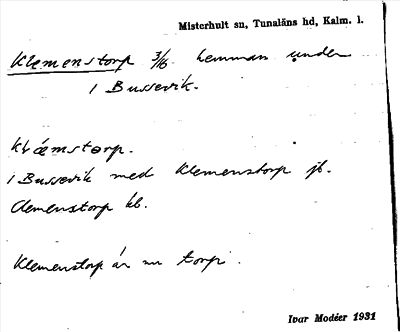 Misterhult sn, Tunaläns hd, Kalm. l.
Klemenstorp 3/16 hemman under
1 Bussevik.
klæmstorp.
1 Bussevik med Klemenstorp jb.
Clemenstorp kb.
Klemenstorp är nu torp.
Ivar Modéer 1931